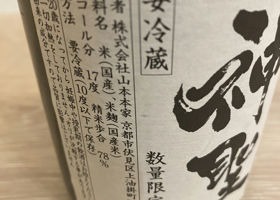 神聖
数量限定
要冷蔵
者 株式会社山本本家 京都市伏見区上油掛町
料名 米(国産) 米麹(国産米)
コール分 17度 精米歩合 78%
方法 要冷蔵(10度以下で保存)